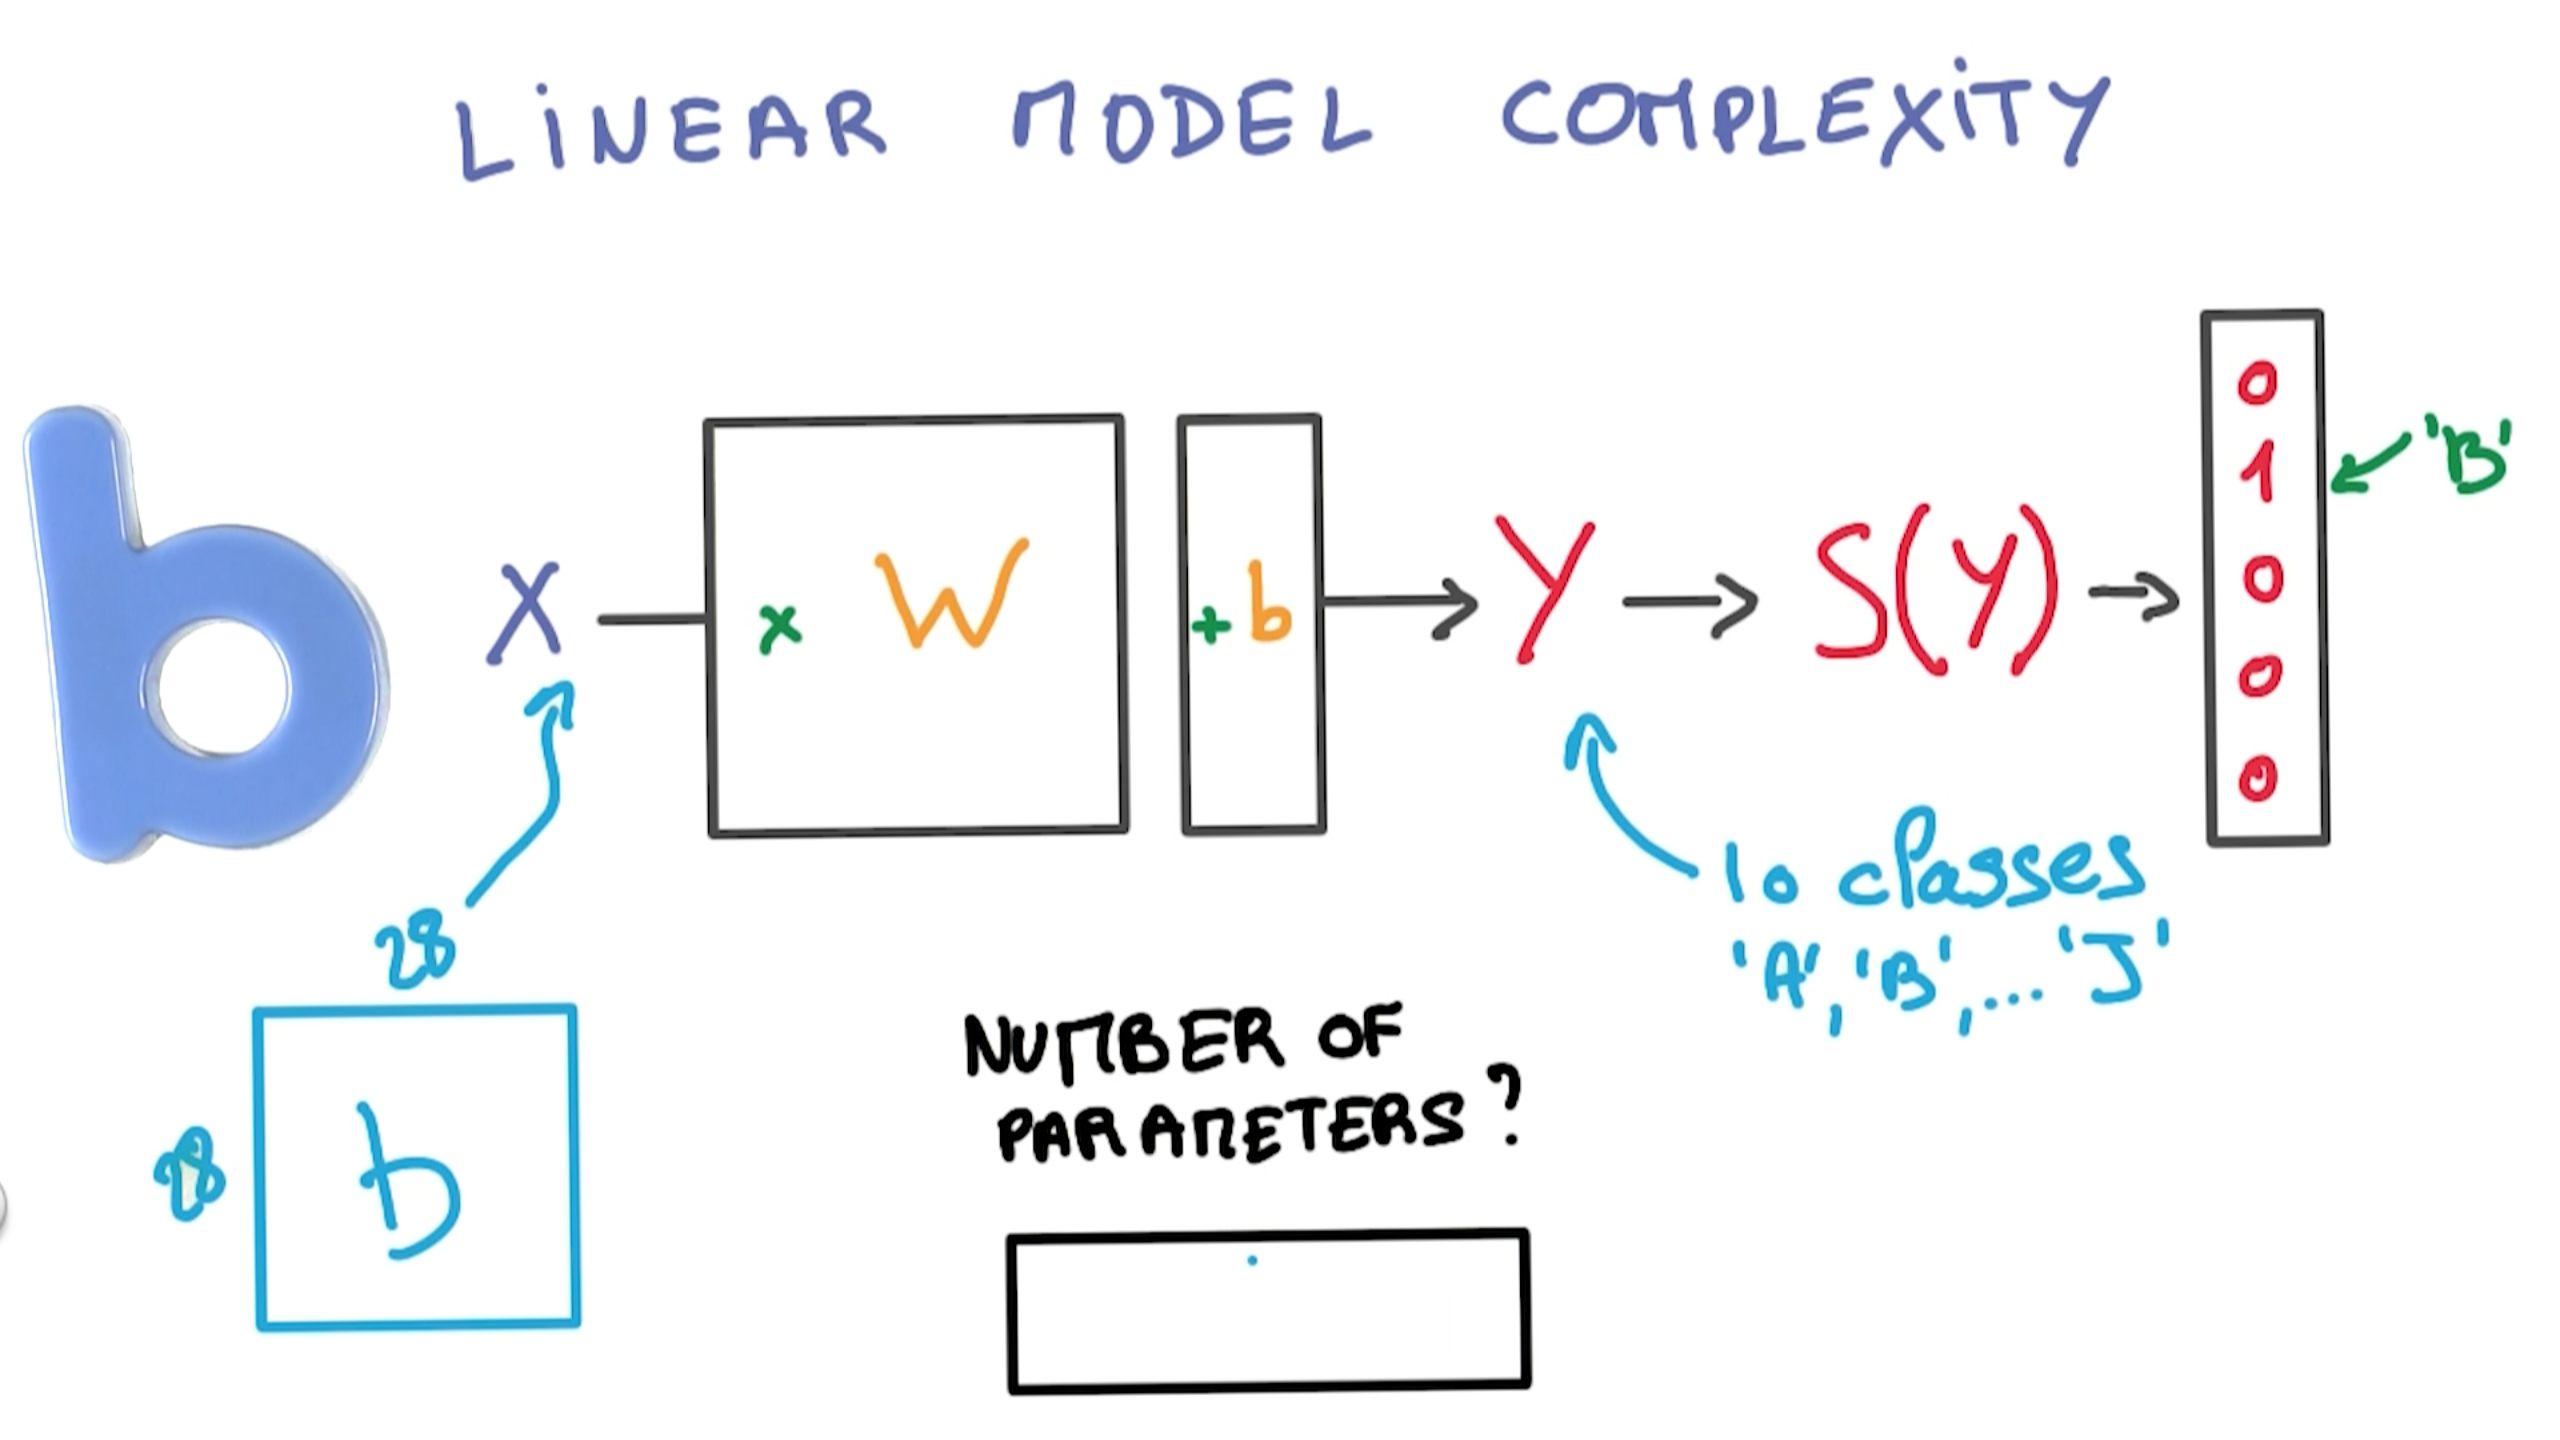 LINEAR MODEL COMPLEXITY
b
X
x W
+ b
Y
S(Y)
0
1
0
0
0
'B'
28
28
b
10 classes
'A', 'B', ... 'J'
NUMBER OF
PARAMETERS?